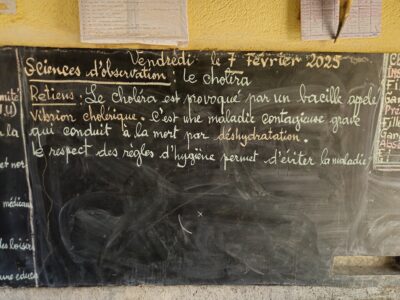 Vendredi le 7 Février 2025
Sciences d'observation : Le choléra
Retiens : Le choléra est provoqué par un bacille appelé
vibrion cholérique. C'est une maladie contagieuse grave
qui conduit à la mort par déshydratation.
Le respect des règles d'hygiène permet d'éviter la maladie
à la
et nor
médicam
des loisirs
une educa